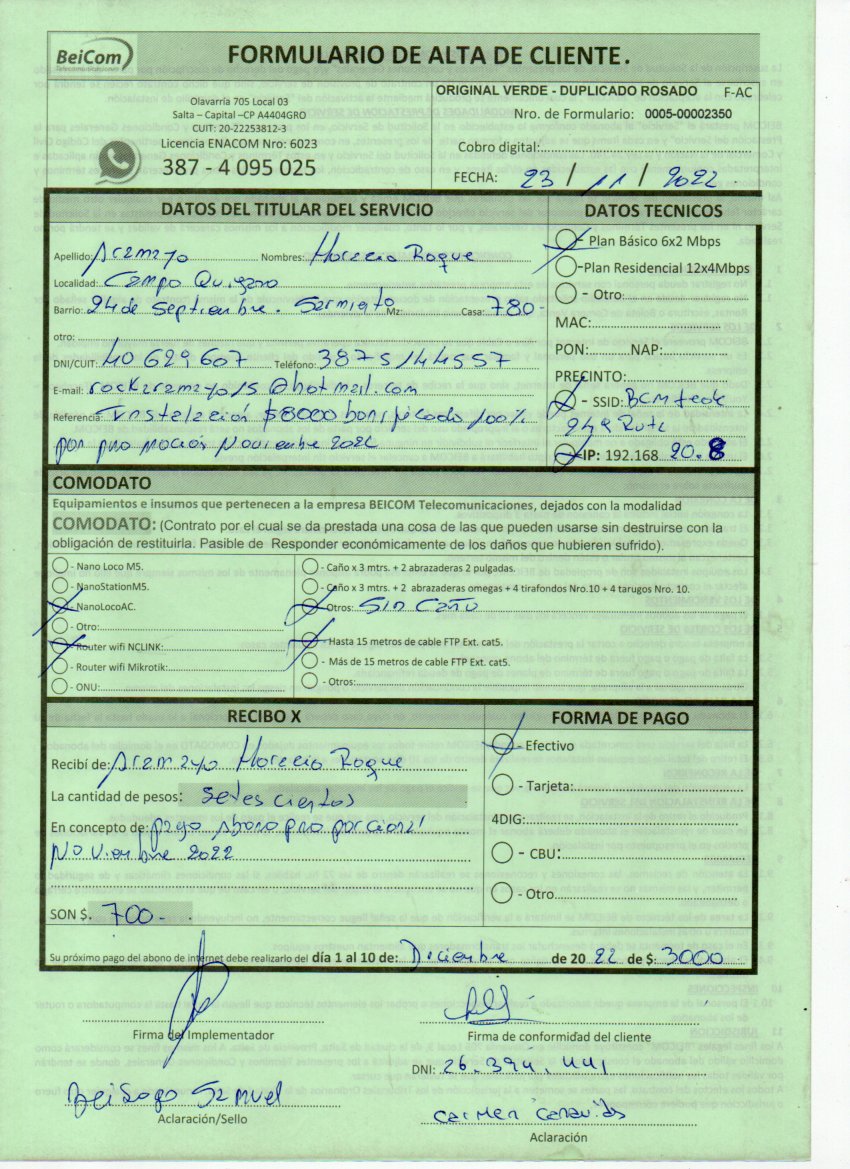 BeiCom
Telecomunicaciones
FORMULARIO DE ALTA DE CLIENTE.
Olavarría 705 Local 03
Salta – Capital –CP A4404GRO
CUIT: 20-22253812-3
Licencia ENACOM Nro: 6023
387 - 4 095 025
ORIGINAL VERDE - DUPLICADO ROSADO F-AC
Nro. de Formulario: 0005-00002350
Cobro digital:
FECHA: 23 / 11 / 2022
DATOS DEL TITULAR DEL SERVICIO
Apellido: Aramayo Nombres: Horacio Roque
Localidad: Campo Quijano
Barrio: 24 de Septiembre. Sarmiento Mz: Casa: 780-
otro:
DNI/CUIT: 40 629 607 Teléfono: 3875144557
E-mail: rockaramayo15@hotmail.com
Referencia: Instalación $8000 bonificado 100%
por promoción Noviembre 2022
DATOS TECNICOS
- Plan Básico 6x2 Mbps
-Plan Residencial 12x4Mbps
- Otro:
MAC:
PON: NAP:
PRECINTO:
- SSID: BCM tedk
249 Ruta
-IP: 192.168 20.8
COMODATO
Equipamientos e insumos que pertenecen a la empresa BEICOM Telecomunicaciones, dejados con la modalidad
COMODATO: (Contrato por el cual se da prestada una cosa de las que pueden usarse sin destruirse con la
obligación de restituirla. Pasible de Responder económicamente de los daños que hubieren sufrido).
- Nano Loco M5.
- NanoStationM5.
- NanoLocoAC.
- Otro:
- Router wifi NCLINK:
- Router wifi Mikrotik:
- ONU:
- Caño x 3 mtrs. + 2 abrazaderas 2 pulgadas.
- Caño x 3 mtrs. + 2 abrazaderas omegas + 4 tirafondos Nro.10 + 4 tarugos Nro. 10.
Otros: Sin Caño
- Hasta 15 metros de cable FTP Ext. cat5.
- Más de 15 metros de cable FTP Ext. cat5.
- Otros:
RECIBO X
Recibí de: Aramayo Horacio Roque
La cantidad de pesos: Setescientos
En concepto de: pago Abono proporcional
Noviembre 2022
SON $. 700-
FORMA DE PAGO
- Efectivo
- Tarjeta:
4DIG:
- CBU:
- Otro
Su próximo pago del abono de internet debe realizarlo del día 1 al 10 de: Diciembre de 20 22 de $: 3000
Firma del Implementador
Firma de conformidad del cliente
DNI: 26.394.441
Samuel
Aclaración/Sello
Carmen
Aclaración